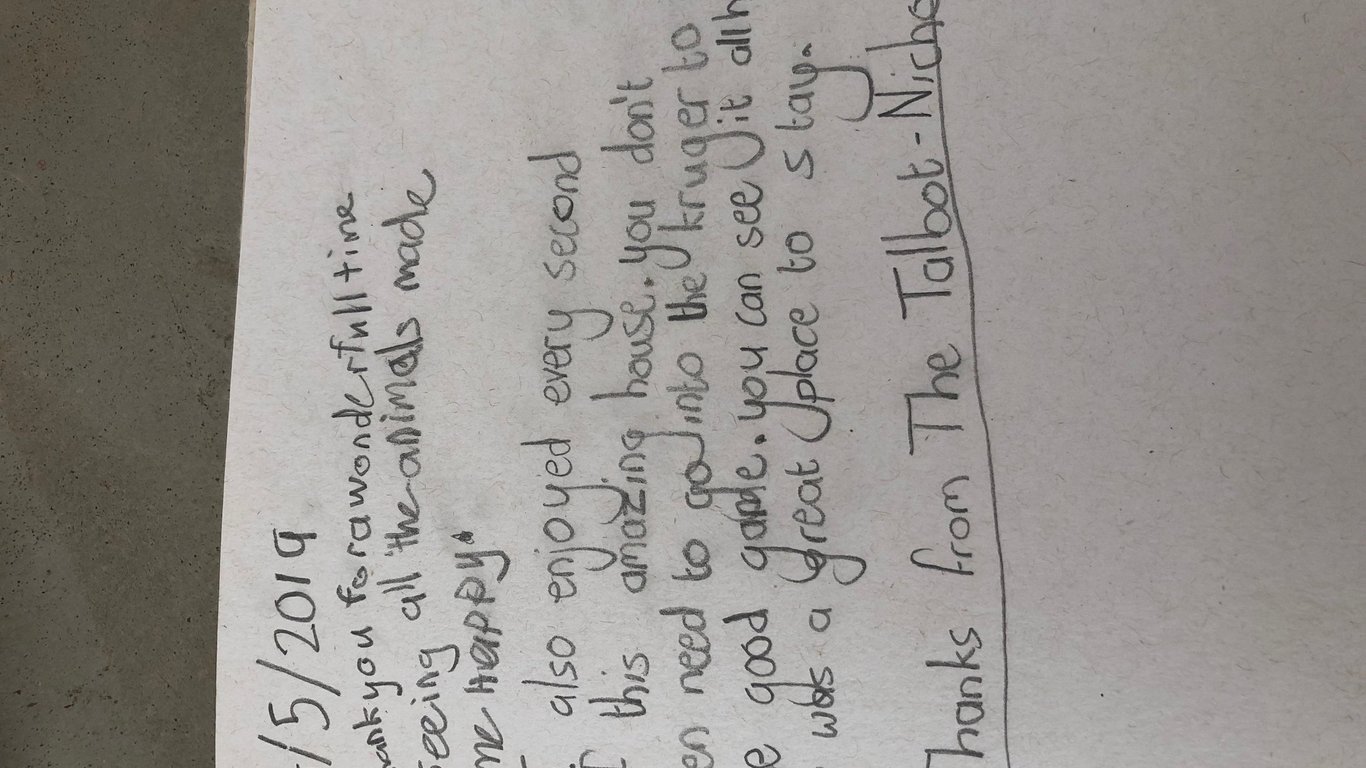 /5/2019
ankyou for a wonderfull time
eeing all the animals made
me Happy.
also enjoyed every second
this amazing house. you don't
en need to go into the kruger to
e good game. you can see it all h
was a great place to stay.
hanks from The Talbot-Nicho